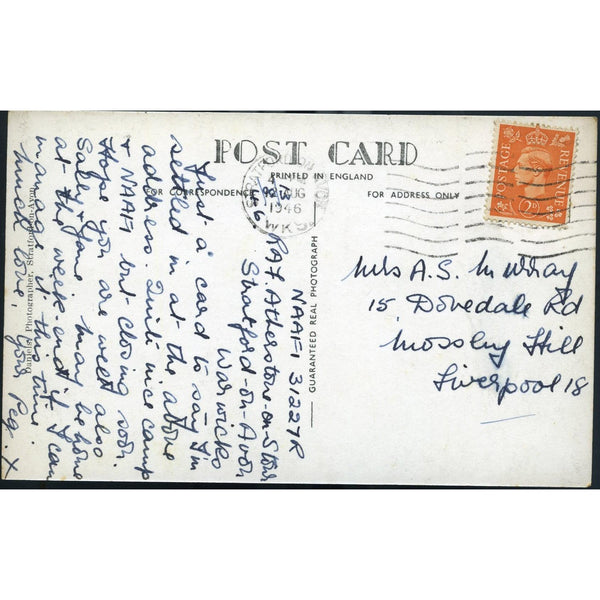 POST CARD
PRINTED IN ENGLAND
FOR CORRESPONDENCE
FOR ADDRESS ONLY
GUARANTEED REAL PHOTOGRAPH
Daniels, Photographer, Stratford-on-Avon
POSTAGE
REVENUE
2D
AUG
1946
NAAFI 31227R
RAF. Atherstone-on-Stour
Stratford-on-Avon
Warwicks
Just a card to say I'm
settled in at the above
address. Quite nice camp
& NAAFI but closing soon.
Hope you are well also
Sally & Jane may be home
at the week-end if I can
manage it this time.
much love, yours Peg. X
Mrs A.S. Murray
15, Dovedale Rd
Mossley Hill
Liverpool 18